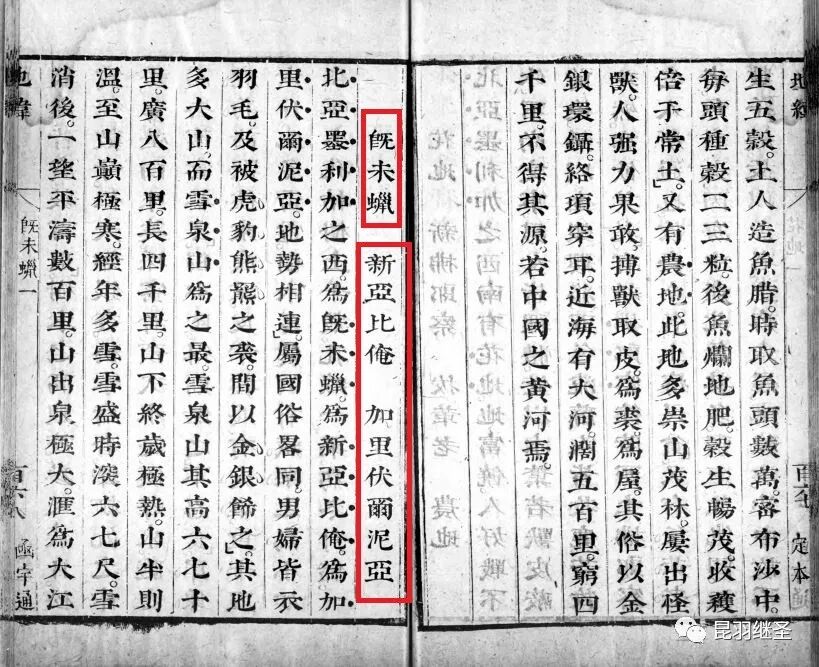 地緯
生五穀。土人造魚腊。時取魚頭數萬。密布沙中。
每頭種穀二三粒。後魚爛地肥。穀生暢茂。收穫
倍于常土」又有農地。此地多崇山茂林。屢出怪
獸。人强力果敢。搏獸取皮。爲裘爲屋。其俗以金
銀環鑷。絡項穿耳。近海有大河。濶五百里。窮四
千里。不得其源。若中國之黄河焉。
定本
旣未蠟 新亞比俺 加里伏爾泥亞
北亞墨利加之西。爲旣未蠟。爲新亞比俺。爲加
里伏爾泥亞。地勢相連」屬國俗畧同。男婦皆衣
羽毛。及被虎豹熊羆之裘。間以金銀飾之」其地
多大山。而雪泉山爲之最。雪泉山其高六七十
里。廣八百里。長四千里。山下終歲極熱。山半則
溫。至山巔極寒。經年多雪。雪盛時深六七尺。雪
消後。一望平濤數百里。山出泉極大。滙爲大江
地緯
旣未蠟一
百六八
函宇通
昆羽继圣